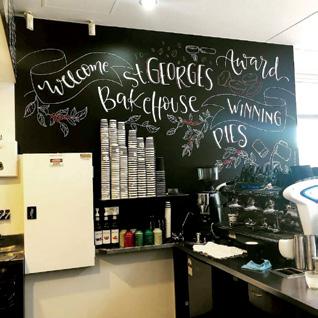 Welcome
St. GEORGES
BakeHouse
Award
WINNING
PIES